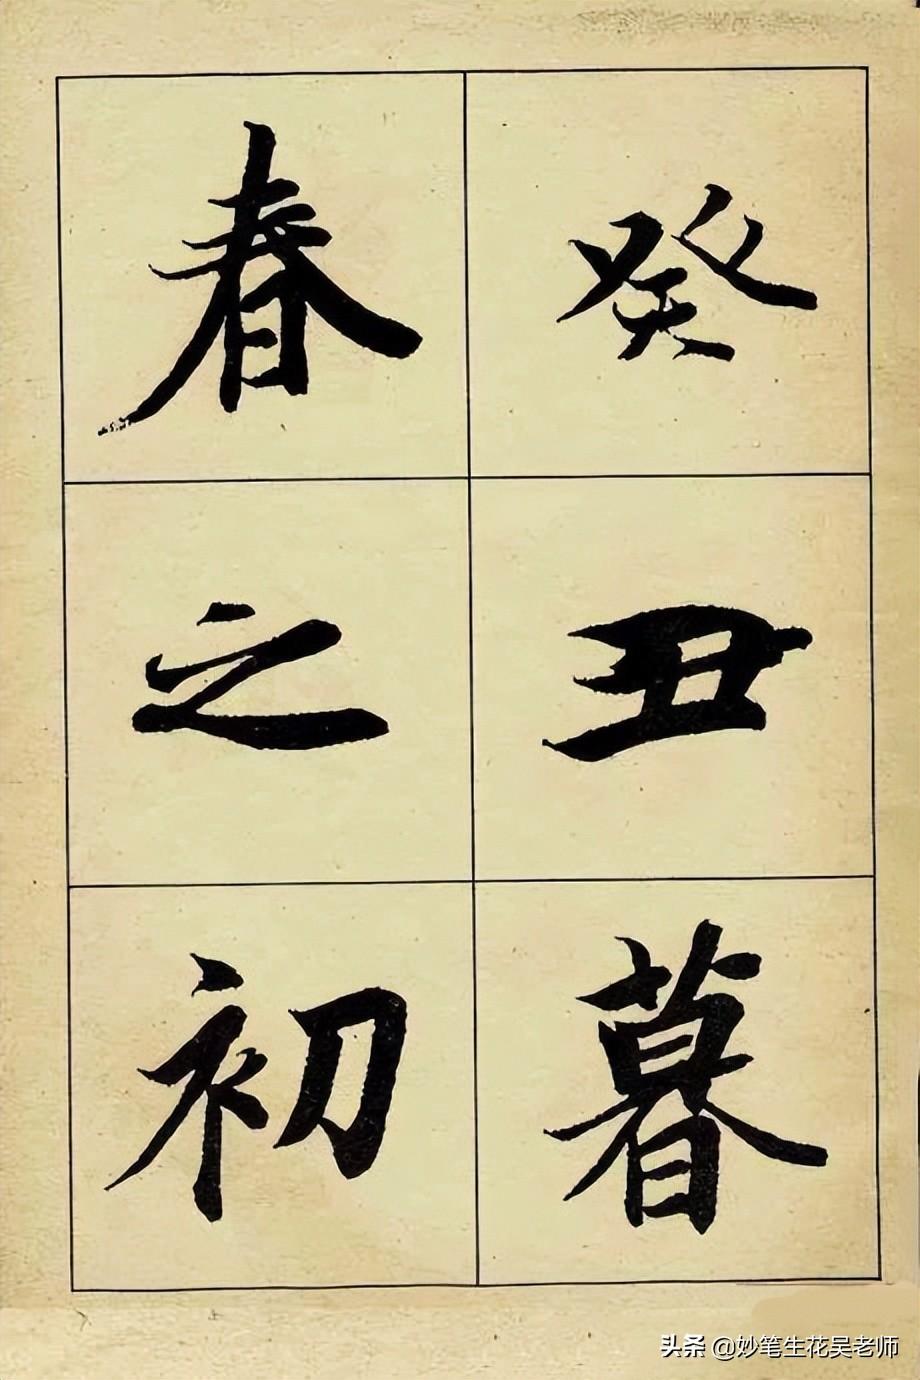 癸丑暮
春之初
头条 @妙笔生花吴老师